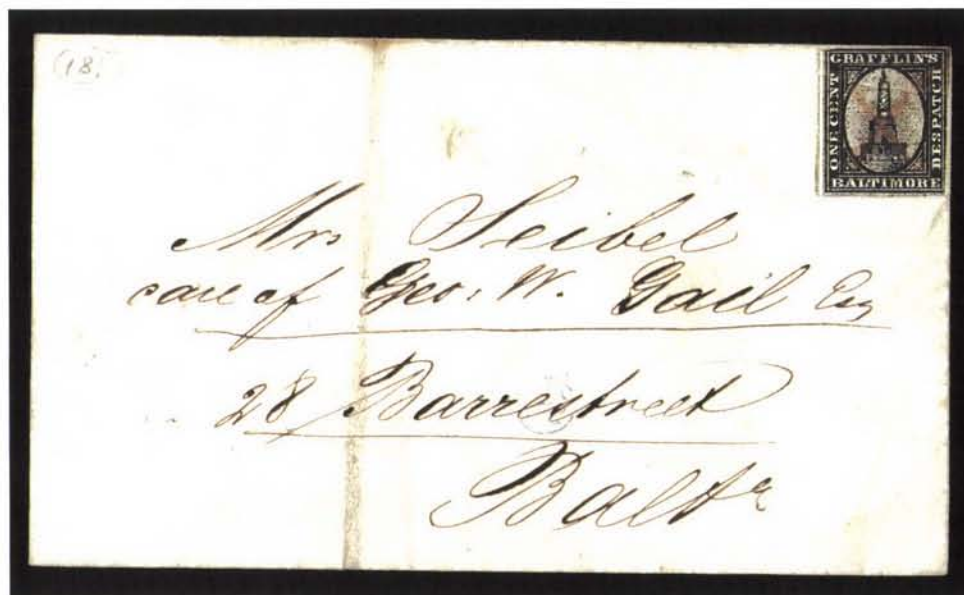 (18.)
GRAFFLIN'S
ONE CENT
DESPATCH
BALTIMORE
Mrs Seibel
care of Geo: W. Gail Esq
28 Barrestreet
Balto